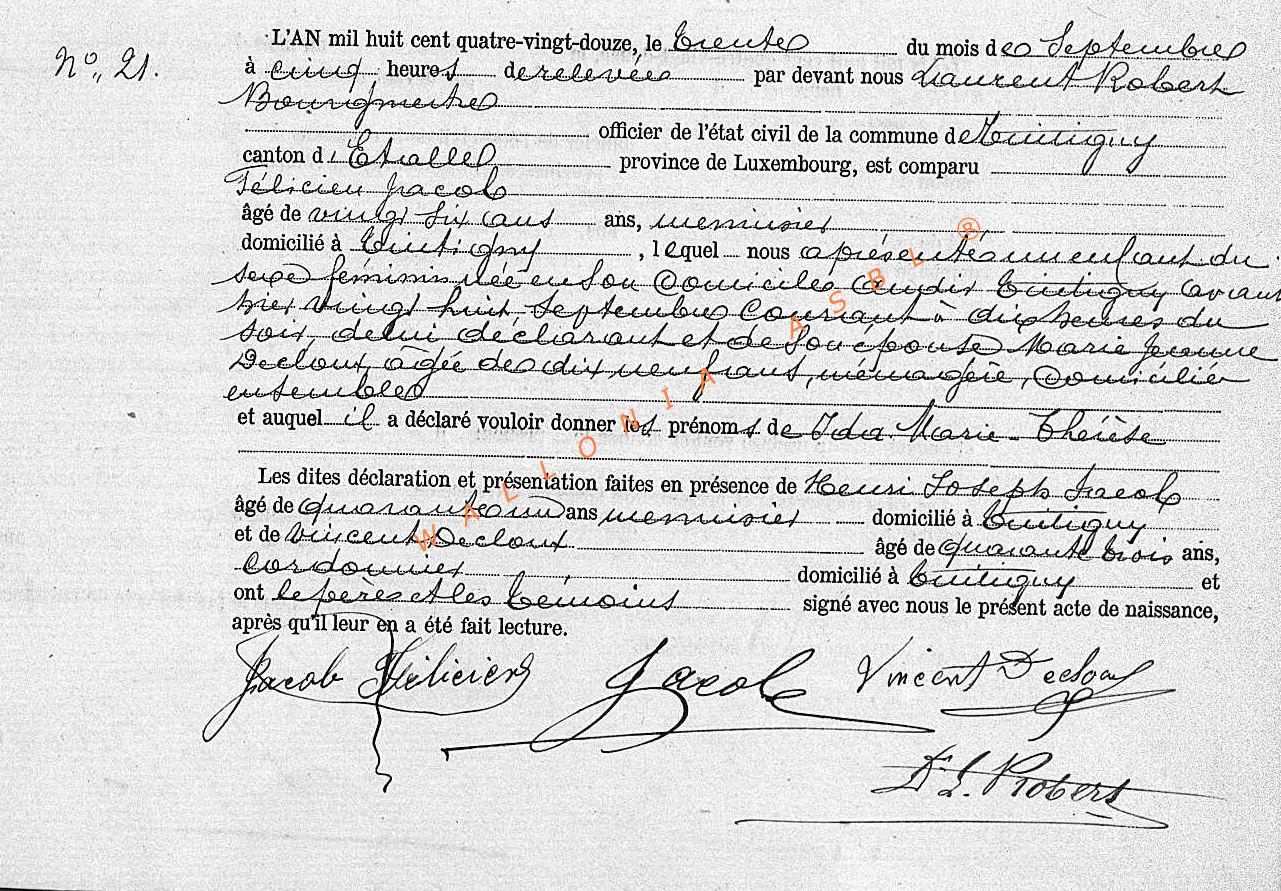 N° 21.
L'AN mil huit cent quatre-vingt-douze, le trente du mois de Septembre
à cinq heures de relevée par devant nous Laurent Robert
Bourgmestre
officier de l'état civil de la commune de Tintigny
canton d'Etalle province de Luxembourg, est comparu
Félicien Jacob
âgé de vingt six ans ans, menuisier
domicilié à Tintigny, lequel nous a présenté un enfant du
sexe féminin née en son domicile audit Tintigny avant
hier vingt huit Septembre courant à dix heures du
soir, de lui déclarant et de son épouse Marie Jeanne
Decloux, agée de dix neuf ans, ménagère, domiciliés
ensemble
et auquel il a déclaré vouloir donner les prénoms de Ida Marie-Thérèse
Les dites déclaration et présentation faites en présence de Henri Joseph Jacob
âgé de quarante un ans menuisier domicilié à Tintigny
et de Vincent Decloux âgé de quarante trois ans,
cordonnier domicilié à Tintigny et
ont le père et les témoins signé avec nous le présent acte de naissance,
après qu'il leur en a été fait lecture.
Jacob Félicien Jacob Vincent Decloux
Dr L. Robert
WALLONIA ASBL ®